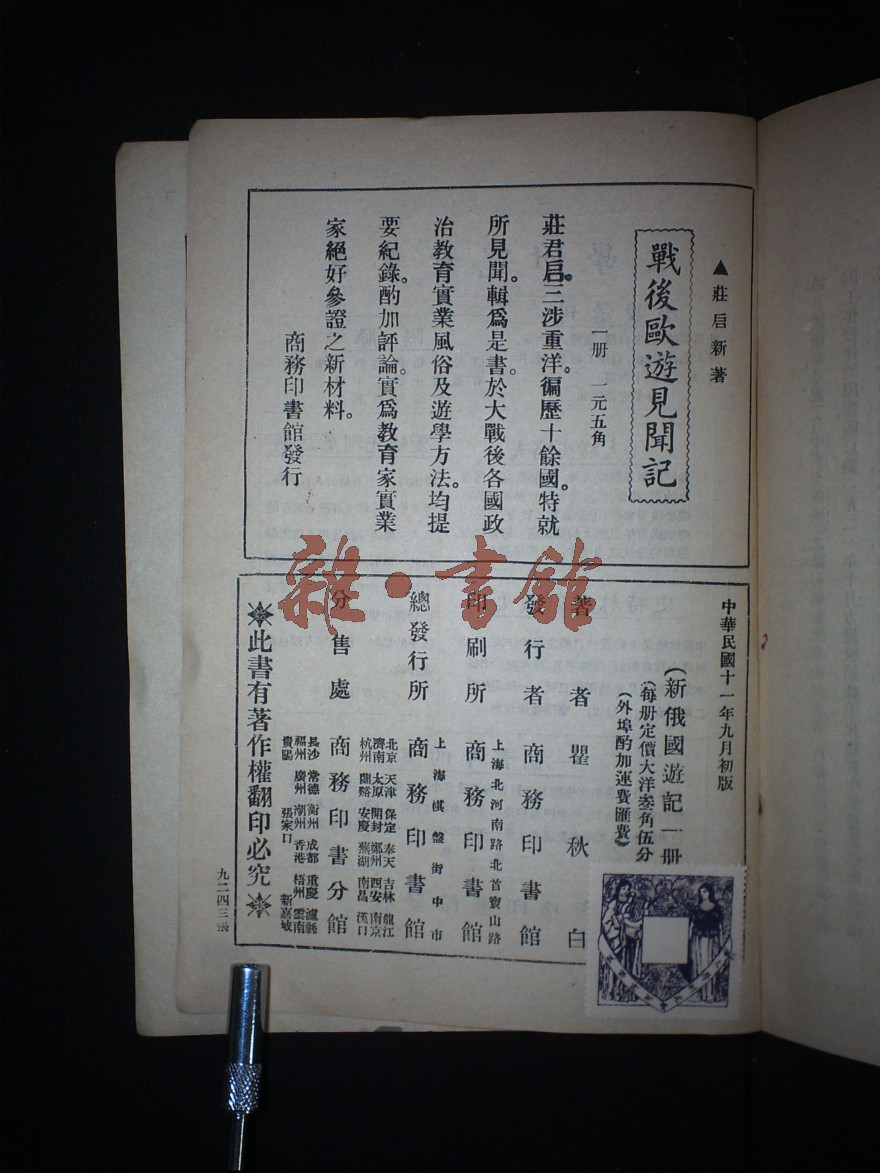 ▲莊启新著
戰後歐遊見聞記
一册　一元五角
莊君启。三涉重洋。徧歷十餘國。特就
所見聞。輯爲是書。於大戰後各國政
治教育實業風俗及遊學方法。均提
要紀錄。酌加評論。實爲教育家實業
家絕好參證之新材料。
商務印書館發行
中華民國十一年九月初版
(新俄國遊記一册
(每册定價大洋叁角伍分
(外埠酌加運費匯費)
著者　瞿秋白
發行者　商務印書館
印刷所　上海北河南路北首寶山路　商務印書館
總發行所　上海棋盤街中市　商務印書館
分售處　商務印書分館
北京　天津　保定　奉天　吉林　龍江
濟南　太原　開封　鄭州　西安　南京
杭州　蘭谿　安慶　蕪湖　南昌　漢口
長沙　常德　衡州　成都　重慶　瀘縣
福州　廣州　潮州　香港　梧州　雲南
貴陽　張家口　新嘉坡
此書有著作權翻印必究
九二四三張
雜·書館